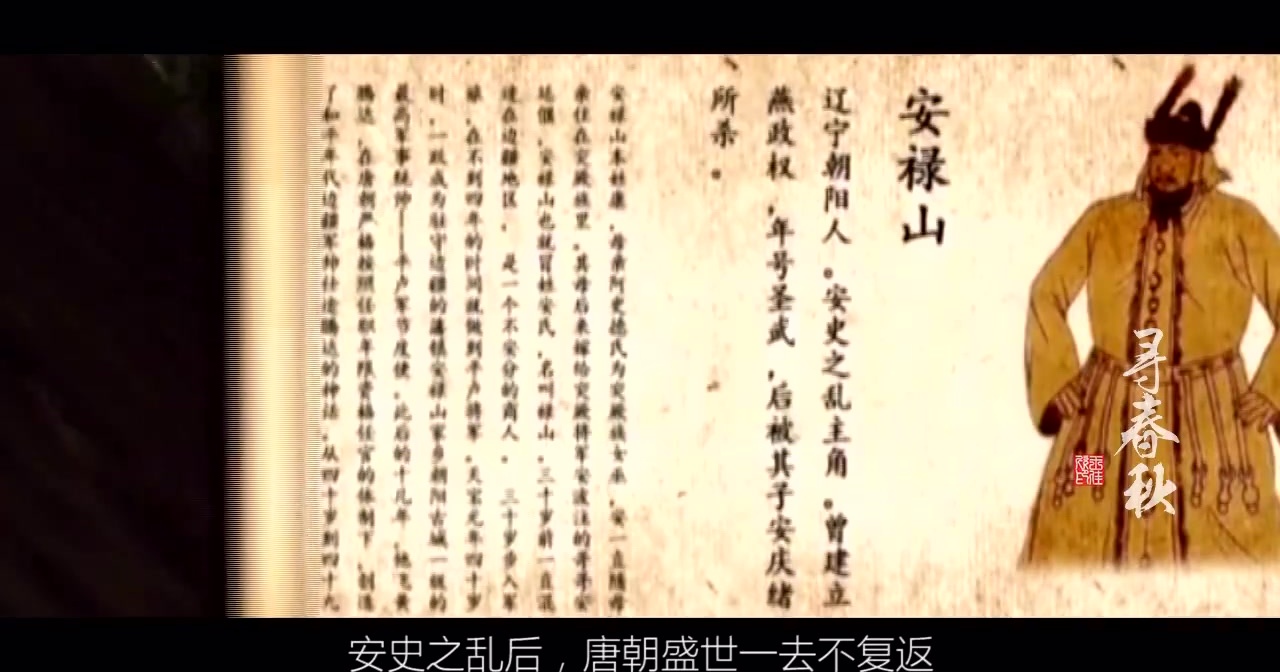 安禄山
辽宁朝阳人。安史之乱主角。曾建立
燕政权，年号圣武，后被其子安庆绪
所杀。
安禄山本姓康，母亲阿史德氏为突厥族女巫，安一直随母
亲住在突厥族里，其母后来嫁给突厥将军安波注的哥哥安
延偃，安禄山也就冒姓安氏，名叫禄山，三十岁前一直混
迹在边疆地区，是一个不安分的商人，三十岁步入军
旅，在不到四年的时间就做到平卢将军，天宝元年四十岁
时，一跃成为驻守边疆的藩镇安禄山家乡朝阳古城一级的
最高军事统帅——平卢军节度使，此后的十几年，他飞黄
腾达，在唐朝严格按照任职年限资格任官的体制下，创造
了和平年代边疆军帅仕途腾达的神话，从四十岁到四十九
寻春秋
安史之乱后，唐朝盛世一去不复返